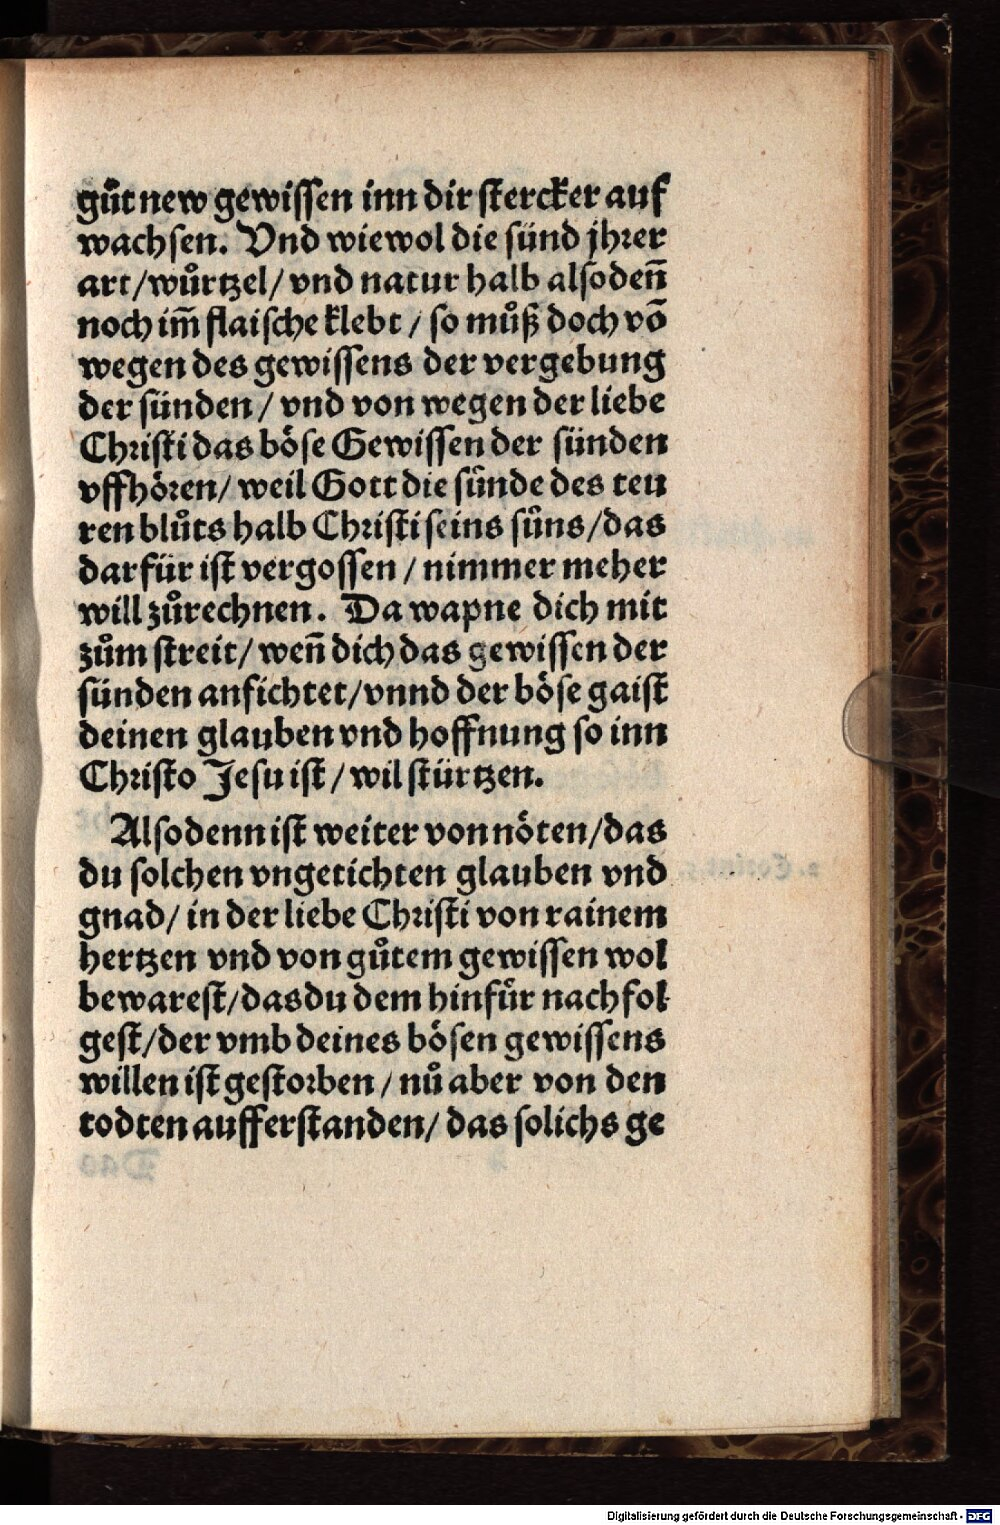 gůt new gewissen inn dir stercker auf
wachsen. Vnd wiewol die sünd jhrer
art/wůrtzel/ vnd natur halb alsodeñ
noch im̃ flaische klebt / so můß doch võ
wegen des gewissens der vergebung
der sünden / vnd von wegen der liebe
Christi das böse Gewissen der sünden
vffhören/ weil Gott die sünde des teu
ren blůts halb Christi seins sůns/das
darfür ist vergossen / nimmer meher
will zůrechnen. Da wapne dich mit
zům streit/ weñ dich das gewissen der
sünden anfichtet/vnnd der böse gaist
deinen glauben vnd hoffnung so inn
Christo Jesu ist / wil stürtzen.
Alsodenn ist weiter von nöten/das
du solchen vngetichten glauben vnd
gnad/ in der liebe Christi von rainem
hertzen vnd von gůtem gewissen wol
bewarest/das du dem hinfůr nachfol
gest/der vmb deines bösen gewissens
willen ist gestorben / nů aber von den
todten aufferstanden/ das solichs ge
Digitalisierung gefördert durch die Deutsche Forschungsgemeinschaft - DFG